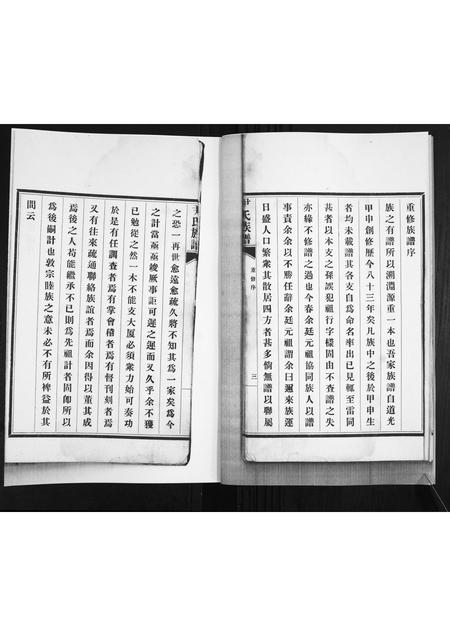 重修族譜序
族之有譜所以溯淵源重一本也吾家族譜自道光
甲申創修歷今八十三年矣凡族中之後於甲申生
者均未載譜其各支自為命名率出已見輒至雷同
甚者以本支之孫誤犯祖行字樣固由不查譜之失
亦緣不修譜之過也今春余廷元祖協同族人以譜
事責余余以不勝任辭余廷元祖謂余曰邇來族運
日盛人口繁衆其散居四方者甚多倘無譜以聯屬
尹氏族譜
重修序
三
之恐一再世愈遠愈疏久將不知其為一家矣為今
之計當亟亟竣厥事詎可遲之遲而又久乎余不獲
已勉從之然一木不能支大厦必須衆力始可奏功
於是有任調查者焉有掌會稽者焉有督刊刻者焉
又有往來疏通聯絡族誼者焉而余因得以董其成
焉後之人苟能繼承不已則為先祖計者固卽所以
為後嗣計也敦宗睦族之意未必不有所裨益於其
間云
氏族譜